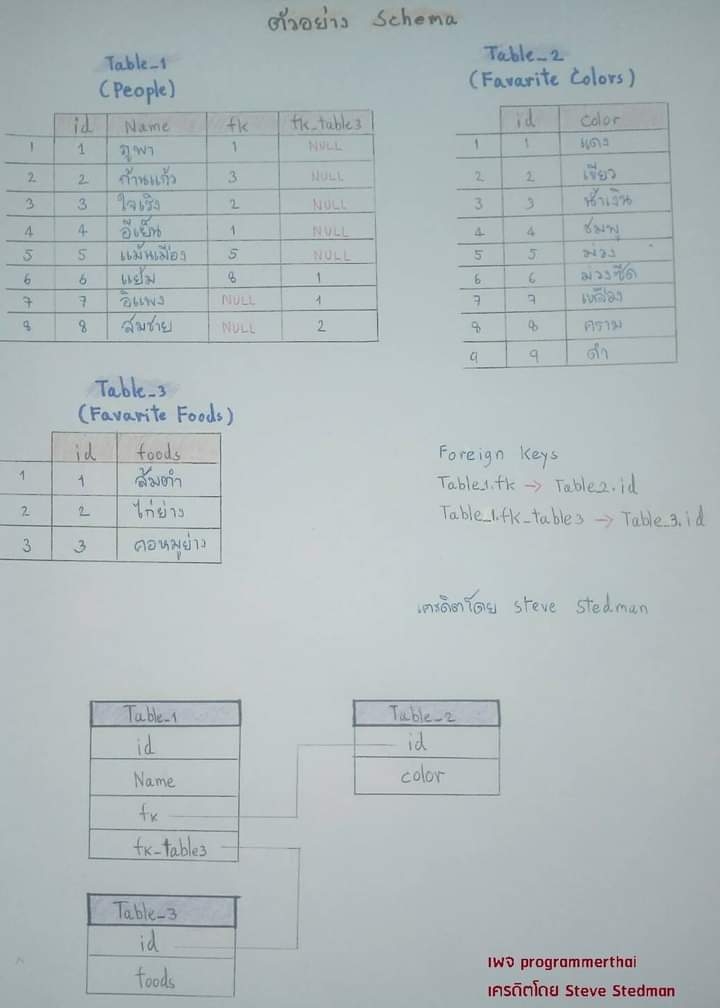 ตัวอย่าง Schema
Table_1
(People)
id Name fk fk_table3
1 1 ภูผา 1 NULL
2 2 ก้านแก้ว 3 NULL
3 3 ใจเริง 2 NULL
4 4 อีเย็น 1 NULL
5 5 แม้นเมือง 5 NULL
6 6 แย้ม 8 1
7 7 อีแพง NULL 1
8 8 สมชาย NULL 2
Table_2
(Favarite Colors)
id color
1 1 แดง
2 2 เขียว
3 3 น้ำเงิน
4 4 ชมพู
5 5 ม่วง
6 6 ม่วงซีด
7 7 เหลือง
8 8 คราม
9 9 ดำ
Table_3
(Favarite Foods)
id foods
1 1 ส้มตำ
2 2 ไก่ย่าง
3 3 คอหมูย่าง
Foreign Keys
Table_1.fk → Table2.id
Table_1.fk_table3 → Table_3.id
เครดิตโดย Steve Stedman
Table_1
id
Name
fk
fk_table3
Table_2
id
color
Table_3
id
foods
เพจ programmerthai
เครดิตโดย Steve Stedman